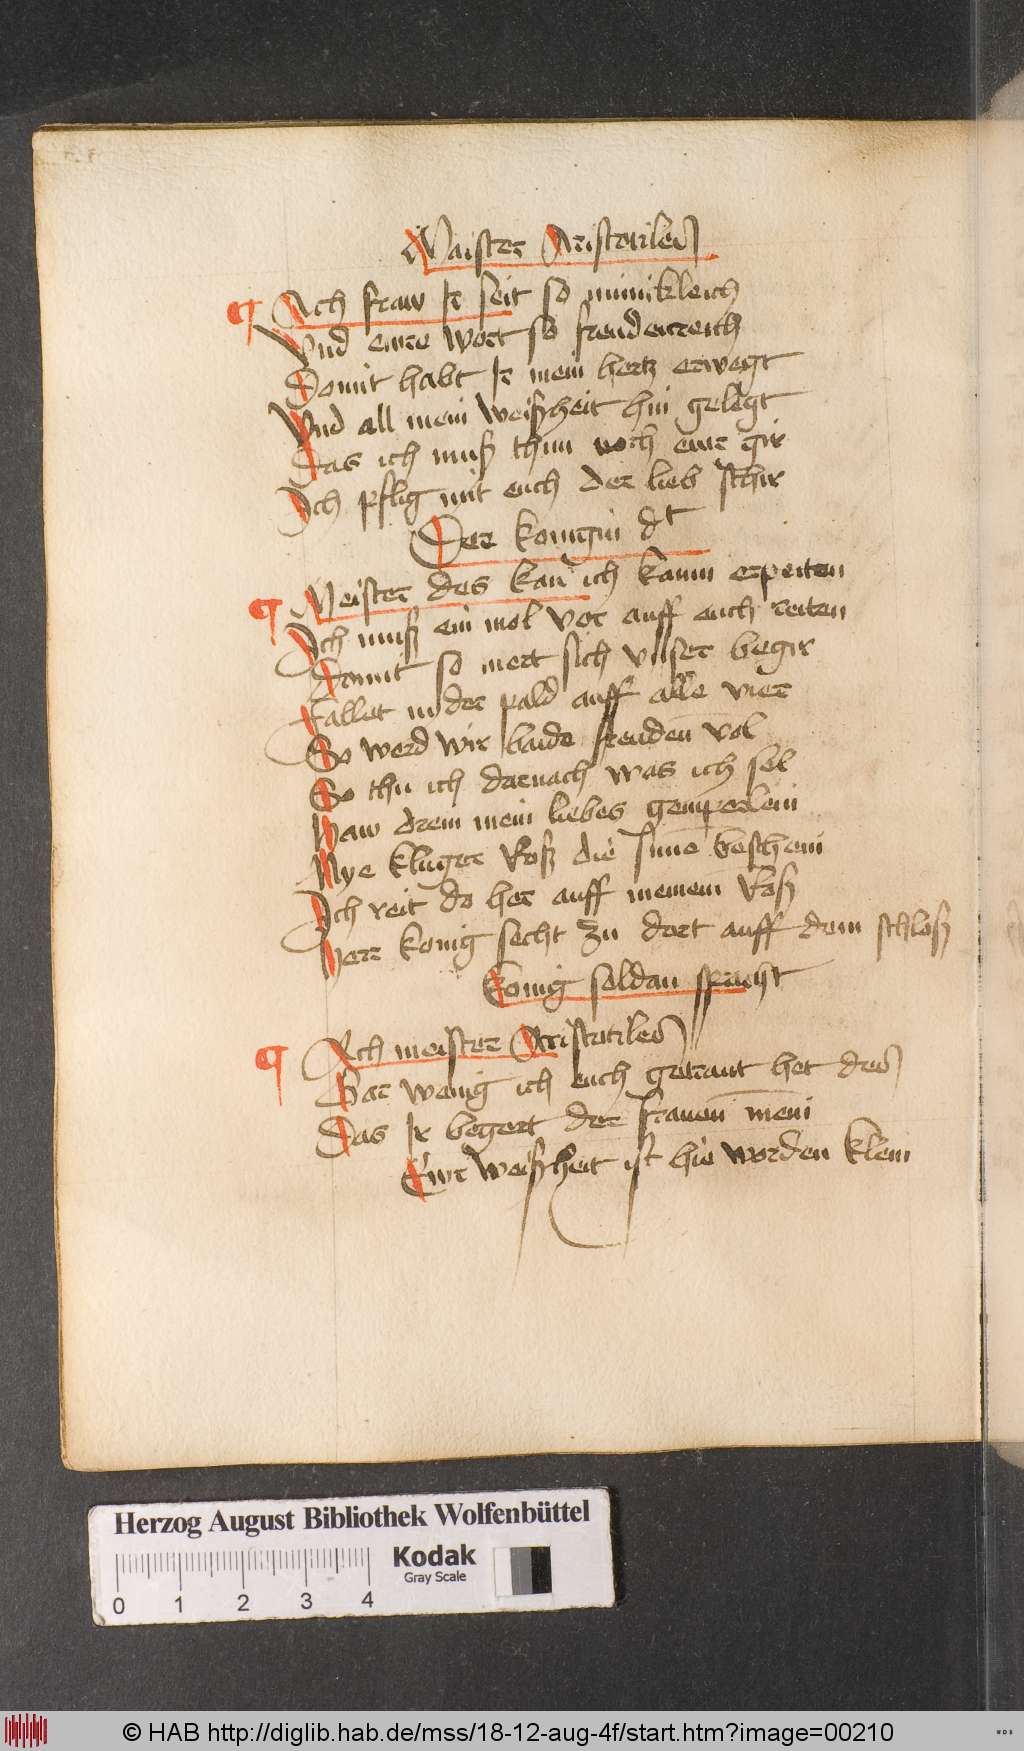 Maister Aristotiles
¶ Ach fraw Ir seit so minikleich
Vnd ewre wort so freudenreich
Domit habt Ir mein hertz erwegt
Vnd all mein weißheit hin gelegt
Das ich muß thun noch ewr gir
Ich pflig mit euch der lieb schir
Der konigin dt
¶ Meister des kan ich kaum erpeiten
Ich muß ein mol vor auff euch reiten
Domit so mert sich vnser begir
Fallet nider pald auff alle vier
So werd wir baide freuden vol
So thu ich darnach was ich sol
Haw drein mein liebes gemperlein
Nye kluger Roß die sunne beschein
Ich reit do her auff meinem Roß
Herr konig secht zu dort auff dem schloß
Konig soldan spricht
¶ Ach meister Aristotiles
Gar wenig ich euch getraut het des
Das Ir begert der frauen mein
Ewr weißheit ist hie worden klein
Herzog August Bibliothek Wolfenbüttel
Kodak
Gray Scale
0 1 2 3 4
© HAB http://diglib.hab.de/mss/18-12-aug-4f/start.htm?image=00210
WDB